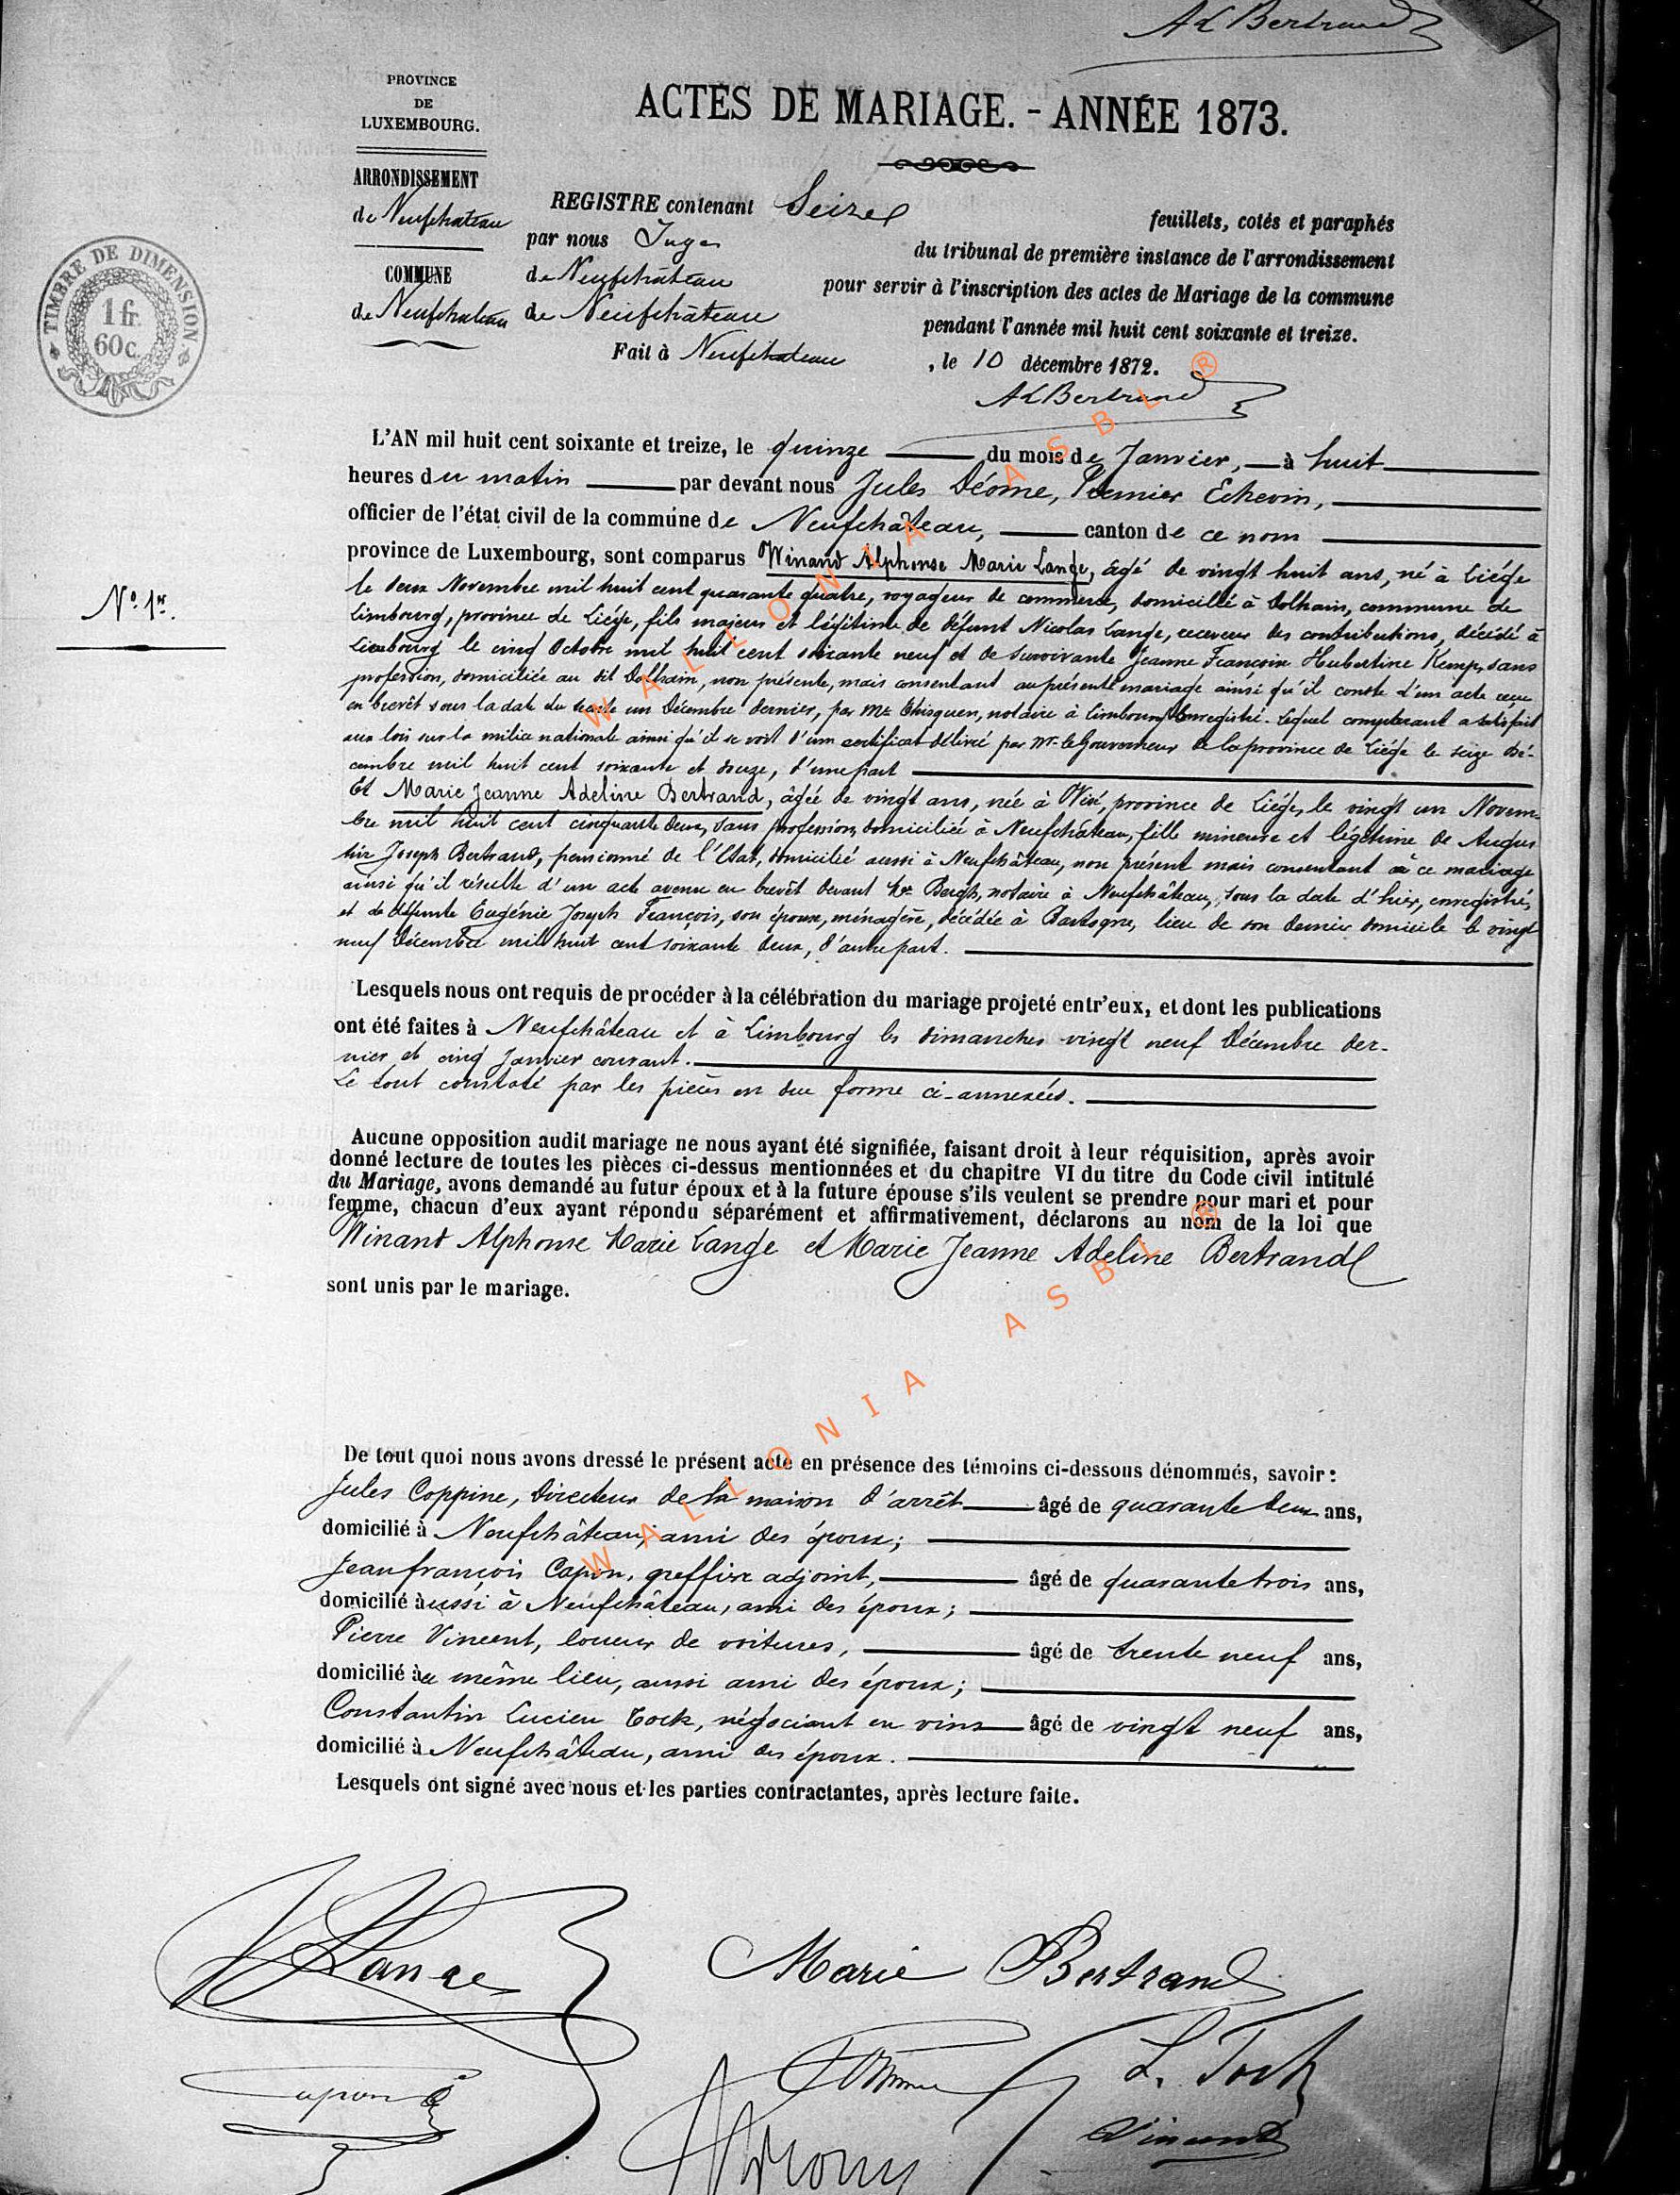 AL Bertrand
PROVINCE
DE
LUXEMBOURG.
ACTES DE MARIAGE. - ANNÉE 1873.
ARRONDISSEMENT
de Neufchateau
COMMUNE
de Neufchateau
TIMBRE DE DIMENSION
1 fr.
60 c.
REGISTRE contenant Seize feuillets, cotés et paraphés
par nous Juge du tribunal de première instance de l'arrondissement
de Neufchâteau pour servir à l'inscription des actes de Mariage de la commune
de Neufchâteau pendant l'année mil huit cent soixante et treize.
Fait à Neufchateau, le 10 décembre 1872.
AL Bertrand
L'AN mil huit cent soixante et treize, le quinze du mois de Janvier, à huit
heures du matin par devant nous Jules Déome, Premier Echevin,
officier de l'état civil de la commune de Neufchâteau, canton de ce nom
province de Luxembourg, sont comparus Winand Alphonse Marie Lange, âgé de vingt huit ans, né à Liége
N° 1er.
le deux Novembre mil huit cent quarante quatre, voyageur de commerce, domicilié à Dolhain, commune de
Limbourg, province de Liége, fils majeur et légitime de défunt Nicolas Lange, receveur des contributions, décédé à
Limbourg le cinq Octobre mil huit cent soixante neuf et de survivante Jeanne Françoise Hubertine Kemp, sans
profession, domiciliée au dit Dolhain, non présente, mais consentant au présent mariage ainsi qu'il conste d'un acte reçu
en brevêt sous la date du trente un Décembre dernier, par Me notaire à Limbourg Enregistré. Lequel comparant a satisfait
aux lois sur la milice nationale ainsi qu'il se voit d'un certificat délivré par Mr. le Gouverneur de la province de Liége le seize Dé-
cembre mil huit cent soixante et douze, d'une part
Et Marie Jeanne Adeline Bertrand, âgée de vingt ans, née à Visé, province de Liége, le vingt un Novem-
bre mil huit cent cinquante deux, sans profession, domiciliée à Neufchâteau, fille mineure et légitime de Augus
tin Joseph Bertrand, pensionné de l'Etat, domicilié aussi à Neufchâteau, non présent mais consentant à ce mariage
ainsi qu'il résulte d'un acte avenu en brevêt devant Me Bergh, notaire à Neufchâteau, sous la date d'hier, enregistré,
et de défunte Eugénie Joseph François, son épouse, ménagère, décédée à Bastogne, lieu de son dernier domicile le vingt
neuf Décembre mil huit cent soixante deux, d'autre part.
Lesquels nous ont requis de procéder à la célébration du mariage projeté entr'eux, et dont les publications
ont été faites à Neufchâteau et à Limbourg les dimanches vingt neuf Décembre der-
nier et cinq Janvier courant.
Le tout constaté par les pièces en due forme ci-annexées.
Aucune opposition audit mariage ne nous ayant été signifiée, faisant droit à leur réquisition, après avoir
donné lecture de toutes les pièces ci-dessus mentionnées et du chapitre VI du titre du Code civil intitulé
du Mariage, avons demandé au futur époux et à la future épouse s'ils veulent se prendre pour mari et pour
femme, chacun d'eux ayant répondu séparément et affirmativement, déclarons au nom de la loi que
Winand Alphonse Marie Lange et Marie Jeanne Adeline Bertrand
sont unis par le mariage.
De tout quoi nous avons dressé le présent acte en présence des témoins ci-dessous dénommés, savoir:
Jules Coppine, Directeur de la maison d'arrêt âgé de quarante deux ans,
domicilié à Neufchâteau, ami des époux;
Jean françois Capon, greffier adjoint, âgé de quarante trois ans,
domicilié aussi à Neufchâteau, ami des époux;
Pierre Vincent, loueur de voitures, âgé de trente neuf ans,
domicilié au même lieu, aussi ami des époux;
Constantin Lucien Tock, négociant en vins âgé de vingt neuf ans,
domicilié à Neufchâteau, ami des époux.
Lesquels ont signé avec nous et les parties contractantes, après lecture faite.
Lange
Marie Bertrand
L. Tock
Capon
Vincent
WALLONIA ASBL ®
WALLONIA ASBL ®